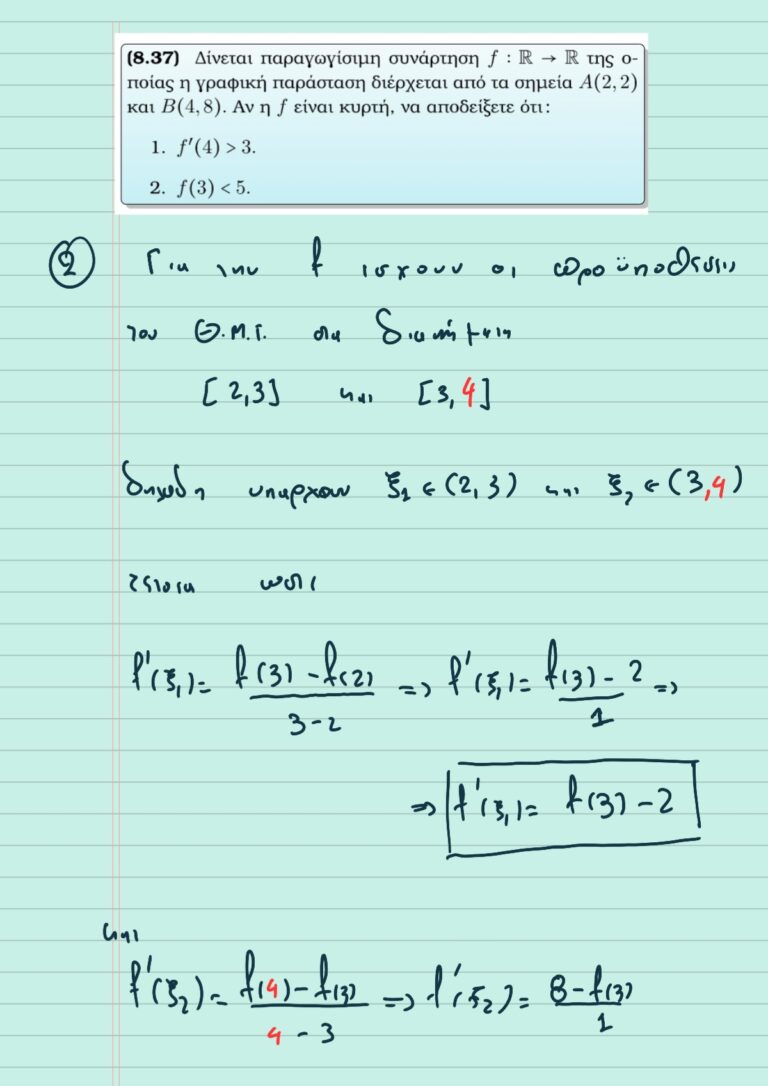 (8.37) Δίνεται παραγωγίσιμη συνάρτηση f : ℝ → ℝ της ο-
ποίας η γραφική παράσταση διέρχεται από τα σημεία A(2, 2)
και B(4, 8). Αν η f είναι κυρτή, να αποδείξετε ότι:
1. f′(4) > 3.
2. f(3) < 5.
② Για την f ισχουν οι προϋποθεσεις
του Θ.Μ.Τ. στα διαστήματα
[2,3] και [3,4]
δηλαδη υπαρχουν ξ₁ ∈ (2,3) και ξ₂ ∈ (3,4)
τετοια ωστε
f'(ξ₁) = (f(3) - f(2))/(3-2) ⇒ f'(ξ₁) = (f(3) - 2)/1 ⇒
⇒ f'(ξ₁) = f(3) - 2
και
f'(ξ₂) = (f(4) - f(3))/(4-3) ⇒ f'(ξ₂) = (8 - f(3))/1